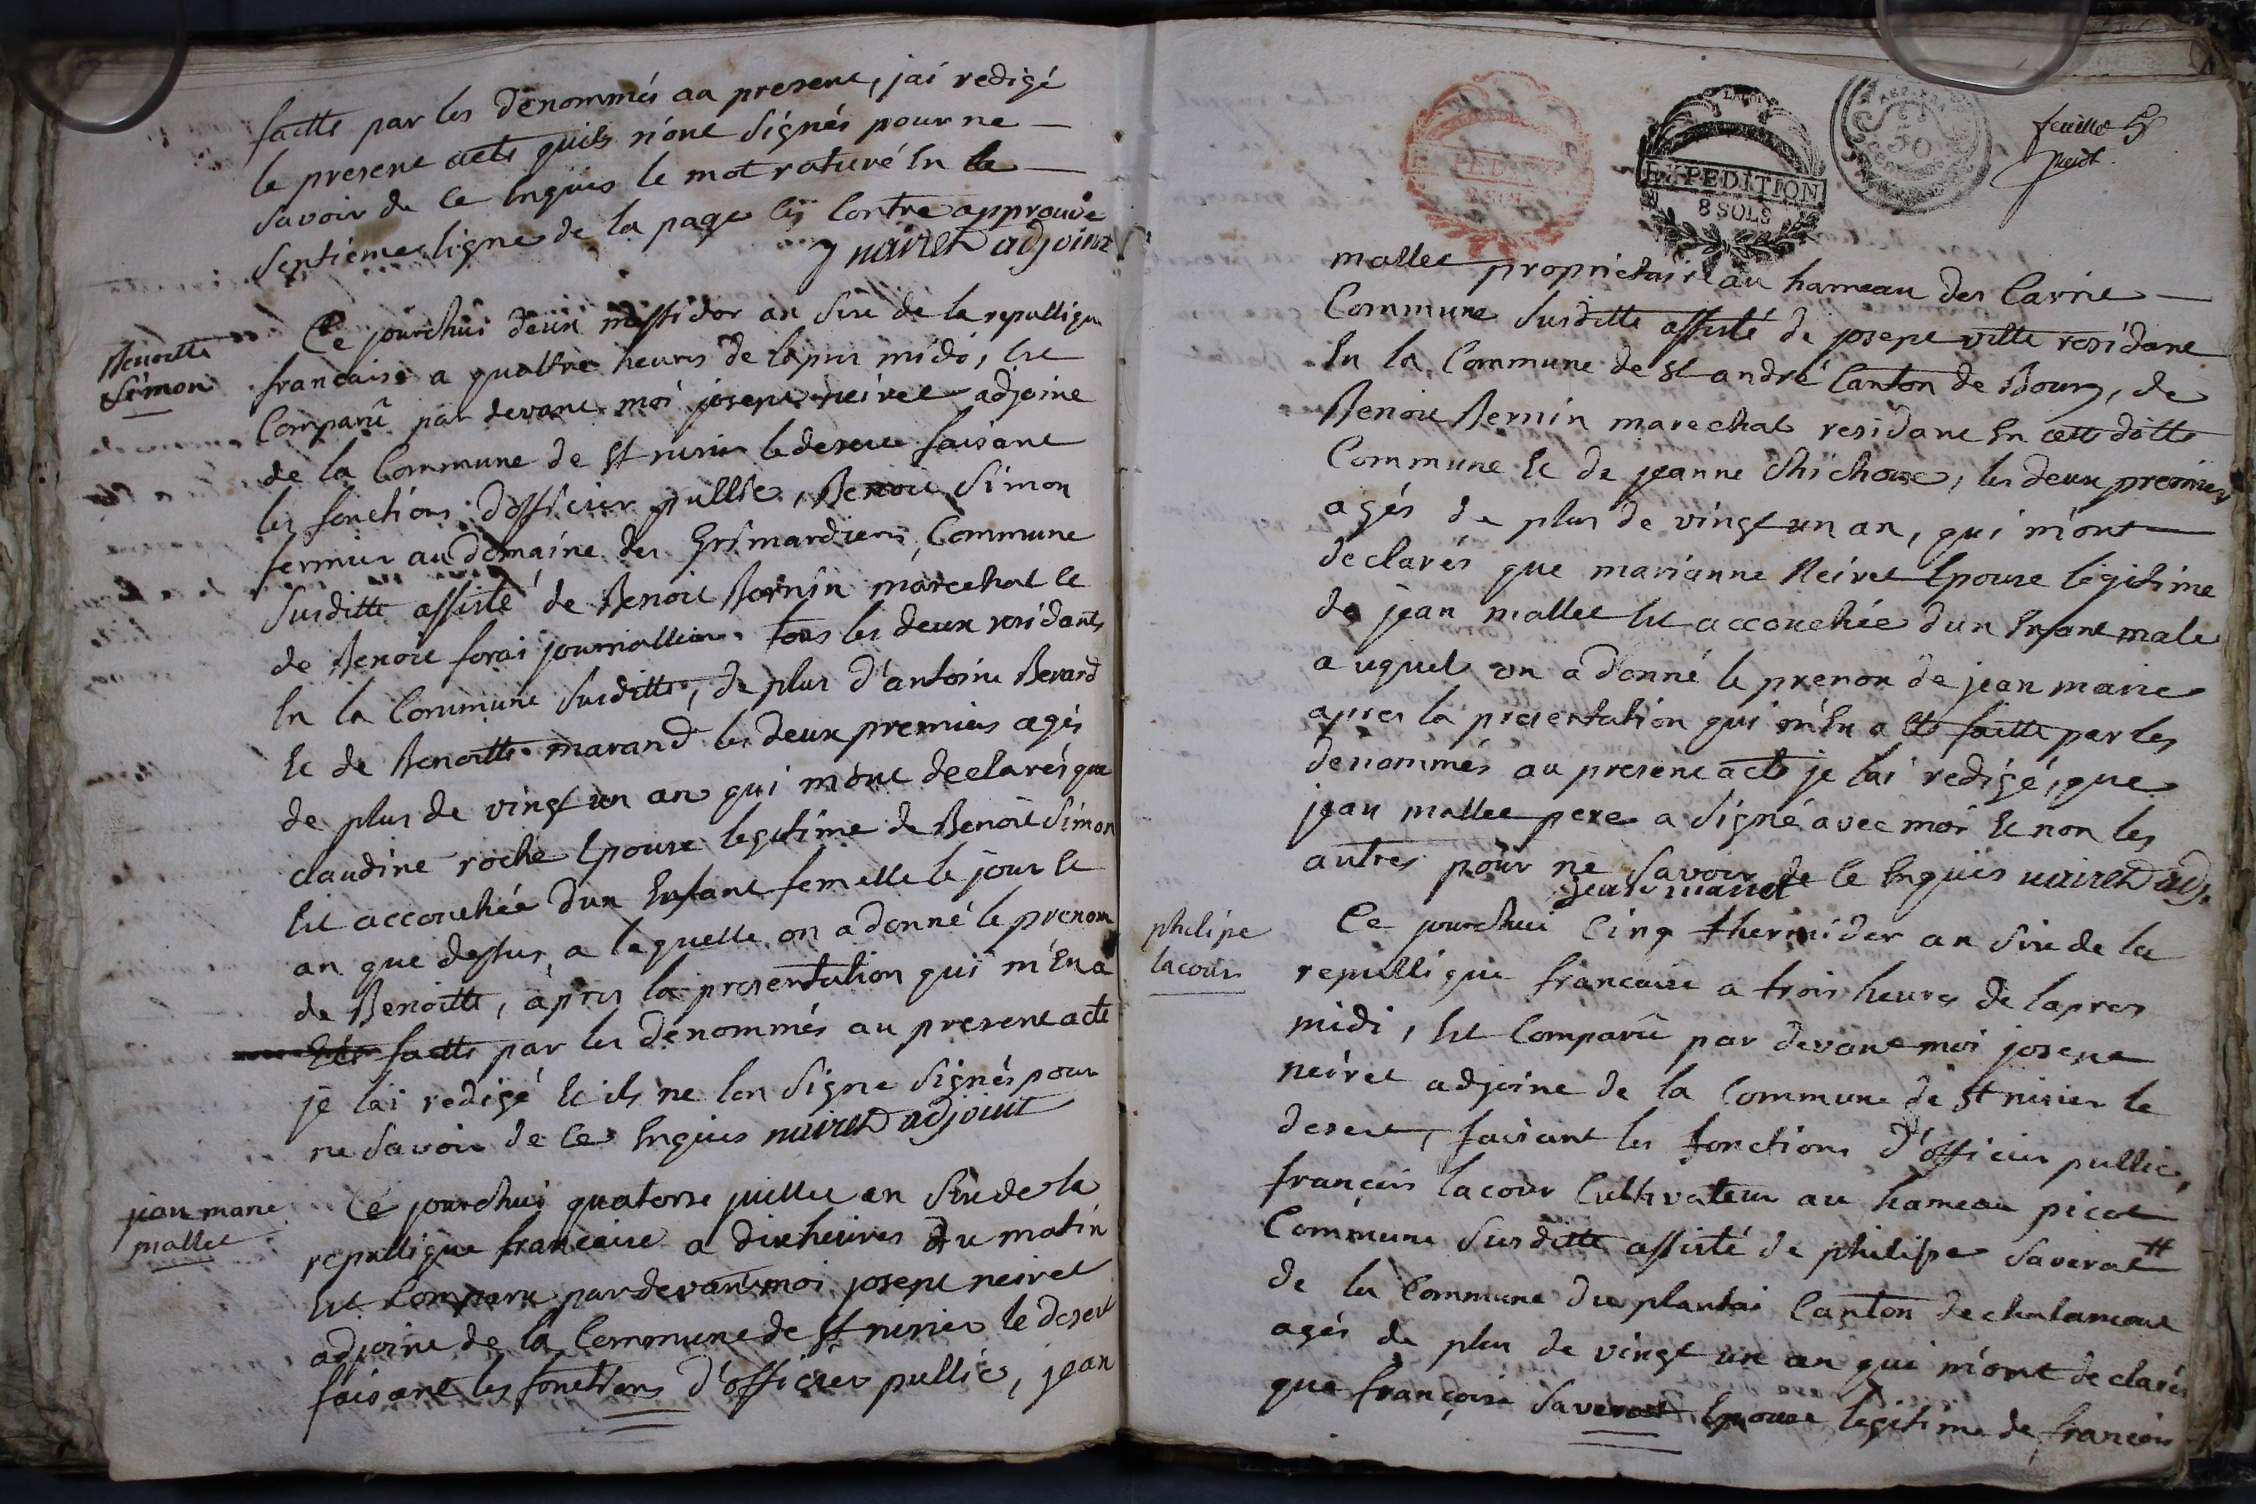 faitte par les dénommés au present, jai redigé
le present acte quils n'ont signés pour ne
savoir de ce enquis le mot raturé en la
septieme ligne de la page cy contre approuvé
neiret adjoint
Benoitte
Simon
Ce jourdhui deux messidor an six de la republique
francaise a quattre heures de lapres midi, est
comparû par devant moi josept neiret adjoint
de la commune de st nisier le desert faisant
les fonctions d'officier pullic, Benoit Simon
fermier au domaine des Grimardieres, commune
susditte assisté de Benoit Bernin marechal et
de Benoit forai journallier tous les deux residants
en la commune susditte, de plus d'antoine Berard
et de Benoitte marand les deux premiers agés
de plus de vingt un an qui m'ont declarés que
claudine roche epouse legitime de Benoit Simon
est accouchée d'un enfant femelle le jour et
an que dessus, a laquelle on a donné le prenom
de Benoitte, apres la presentation qui m'en a
eté faitte par les denommés au present acte
je lai redigé et ils ne lon signe signés pour
ne savoir de ce enquis neiret adjoint
jean marie
mallet
Ce jourdhui quatorse juillet an six de la
repullique francaise a dix heures du matin
est comparu par devant moi josept neiret
adjoint de la commune de st nisier le desert
faisant les fonctions d'officier pullic, jean
EXPEDITION
8 SOLS
50
feuille 5
mallet propriétaire au hameau des Carrie
commune susditte assisté de josept ville residant
en la commune de st andré canton de Bourg, de
Benoit Bernin marechal residant en cette ditte
commune et de jeanne Chichoux, les deux premiers
agés de plus de vingt un an, qui m'ont
declarés que marianne Neiret epouse légitime
de jean mallet est accouchée d'un enfant male
auquel on a donné le prenon de jean marie
apres la presentation qui m'en a eté faitte par les
denommés au present acte je lai redigé, que
jean mallet pere a signé avec moi et non les
autres pour ne savoir de ce enquis neiret adj.
jean mallet
philipe
lacour
Ce jourdhui cinq thermidor an six de la
repullique francaise a trois heures de lapres
midi, est comparû par devant moi josept
neiret adjoint de la commune de st nisier le
desert, faisant les fonctions d'officier pullic,
françois lacour cultivateur au hameau picot
commune susditte assisté de philipe saverat #
de la commune du plantai canton de chalamont
agés de plus de vingt un an qui m'ont declarés
que françoise saverat epouse legitime de françois